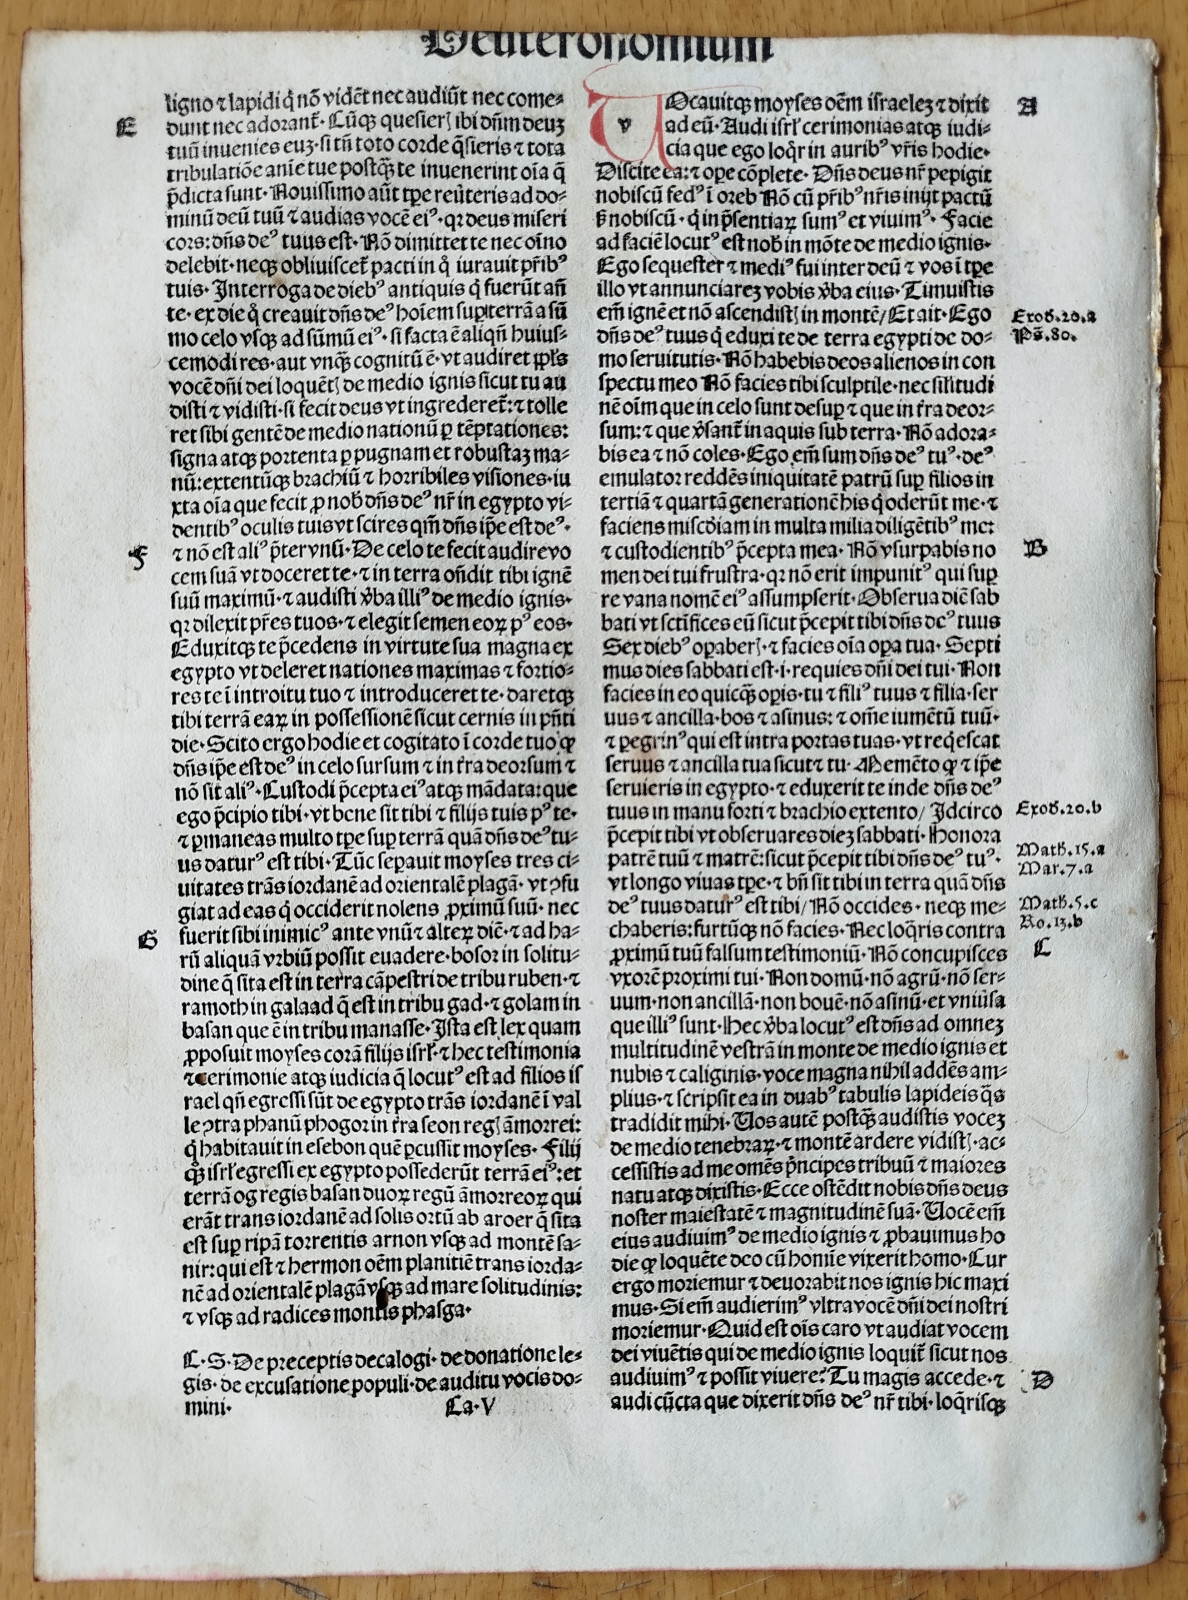 Deuteronomium
ligno ⁊ lapidi q̃ nõ vidẽt nec audiũt nec come⸗
E
dunt nec adorant̃. Cũqꝫ quesieris ibi dñm deuꝫ
tuũ inuenies euꝫ. si tñ toto corde q̃sieris ⁊ tota
tribulatiõe anie tue postq̃ꝫ te inuenerint oĩa q̃
p̃dicta sunt. Nouissimo aũt tꝑe reũteris ad do⸗
minũ deũ tuũ ⁊ audias vocẽ eiꝰ. qꝛ deus miseri
cors: dñs deꝰ tuus est. Nõ dimittet te nec oĩno
delebit. neqꝫ obliuiscet̃ pacti in q̃ iurauit pr̃ibꝰ
tuis. Interroga de diebꝰ antiquis q̃ fuerũt añ
te. ex die q̃ creauit dñs deꝰ hoĩem suꝑ terrã a sũ
mo celo vsqꝫ ad sũmũ eiꝰ. si facta ẽ aliqñ huius⸗
cemodi res. aut vnq̃ꝫ cognitũ ẽ. vt audiret ppl̃s
vocẽ dñi dei loquẽtis de medio ignis sicut tu au
disti ⁊ vidisti. si fecit deus vt ingrederet̃: ⁊ tolle
ret sibi gentẽ de medio nationũ ꝑ tẽptationes:
signa atqꝫ portenta ꝑ pugnam et robustaꝫ ma⸗
nũ: extentũqꝫ brachiũ ⁊ horribiles visiones. iu
xta oĩa que fecit ꝓ nob̃ dñs deꝰ nr̃ in egypto vi⸗
dentibꝰ oculis tuis vt scires qm̃ dñs ip̃e est deꝰ.
F
⁊ nõ est aliꝰ p̃ter vnũ. De celo te fecit audire vo
cem suã vt doceret te. ⁊ in terra oñdit tibi ignẽ
suũ maximũ. ⁊ audisti v̾ba illiꝰ de medio ignis.
qꝛ dilexit pr̃es tuos. ⁊ elegit semen eoꝝ pꝰ eos.
Eduxitqꝫ te p̃cedens in virtute sua magna ex
egypto vt deleret nationes maximas ⁊ fortio⸗
res te ĩ introitu tuo ⁊ introduceret te. daretqꝫ
tibi terrã eaꝝ in possessionẽ sicut cernis in pñti
die. Scito ergo hodie et cogitato ĩ corde tuo ꝙ
dñs ip̃e est deꝰ in celo sursum ⁊ in t̾ra deorsum ⁊
nõ sit aliꝰ. Custodi p̃cepta eiꝰ atqꝫ mãdata: que
ego p̃cipio tibi. vt bene sit tibi ⁊ filijs tuis pꝰ te.
⁊ ꝑmaneas multo tꝑe suꝑ terrã quã dñs deꝰ tu⸗
us daturꝰ est tibi. Tũc seꝑauit moyses tres ci⸗
uitates trãs iordanẽ ad orientalẽ plagã. vt ꝯfu
giat ad eas q̃ occiderit nolens ꝓximũ suũ. nec
G
fuerit sibi inimicꝰ ante vnũ ⁊ alterꝝ diẽ. ⁊ ad ha⸗
rũ aliquã vrbiũ possit euadere. bosor in solitu⸗
dine q̃ sita est in terra cãpestri de tribu ruben. ⁊
ramoth in galaad q̃ est in tribu gad. ⁊ golam in
basan que ẽ in tribu manasse. Ista est lex quam
ꝓposuit moyses corã filijs isrl̃. ⁊ hec testimonia
⁊ cerimonie atqꝫ iudicia q̃ locutꝰ est ad filios is
rael qñ egressi sũt de egypto trãs iordanẽ ĩ val
le ꝯtra phanũ phogor in t̾ra seon regis ãmorrei:
q̃ habitauit in esebon quẽ ꝑcussit moyses. Filij
q̃ꝫ isrl̃ egressi ex egypto possederũt terrã eiꝰ: et
terrã og regis basan duoꝝ regũ ãmorreoꝝ qui
erãt trans iordanẽ ad solis ortũ ab aroer q̃ sita
est suꝑ ripã torrentis arnon vsqꝫ ad montẽ sa⸗
nir: qui est ⁊ hermon oẽm planitiẽ trans iorda⸗
nẽ ad orientalẽ plagã vsqꝫ ad mare solitudinis:
⁊ vsqꝫ ad radices montis phasga.
C. S. De preceptis decalogi. de donatione le⸗
gis. de excusatione populi. de auditu vocis do⸗
mini. Ca. V
v
VOcauitqꝫ moyses oẽm israeleꝫ ⁊ dixit
A
ad eũ. Audi isrl̃ cerimonias atqꝫ iudi⸗
cia que ego loq̃r in auribꝰ vr̃is hodie.
Discite ea: ⁊ oꝑe cõplete. Dñs deus nr̃ pepigit
nobiscũ fedꝰ ĩ oreb Nõ cũ pr̃ibꝰ nr̃is inijt pactũ
s̃ nobiscũ. q̃ in p̃sentiaꝝ sumꝰ et viuimꝰ. Facie
ad faciẽ locutꝰ est nob̃ in mõte de medio ignis.
Ego sequester ⁊ mediꝰ fui inter deũ ⁊ vos ĩ tꝑe
illo vt annunciareꝫ vobis v̾ba eius. Timuistis
em̃ ignẽ et nõ ascendistis in montẽ/ Et ait. Ego
Exod.20.a
dñs deꝰ tuus q̃ eduxi te de terra egypti de do⸗
Ps̃.80.
mo seruitutis. Nõ habebis deos alienos in con
spectu meo Nõ facies tibi sculptile. nec silitudi
nẽ oĩm que in celo sunt desuꝑ ⁊ que in t̾ra deor⸗
sum: ⁊ que v̾sant̃ in aquis sub terra. Nõ adora⸗
bis ea ⁊ nõ coles. Ego em̃ sum dñs deꝰ tuꝰ. deꝰ
emulator reddẽs iniquitatẽ patrũ suꝑ filios in
tertiã ⁊ quartã generationẽ his q̃ oderũt me. ⁊
faciens misc̃diam in multa milia diligẽtibꝰ me:
⁊ custodientibꝰ p̃cepta mea. Nõ vsurpabis no
B
men dei tui frustra. qꝛ nõ erit impunitꝰ qui suꝑ
re vana nomẽ eiꝰ assumpserit. Obserua diẽ sab
bati vt sctĩfices eũ sicut p̃cepit tibi dñs deꝰ tuus
Sex diebꝰ oꝑaberis. ⁊ facies oĩa oꝑa tua. Septi
mus dies sabbati est. i. requies dñi dei tui. Non
facies in eo quicq̃ꝫ oꝑis. tu ⁊ filiꝰ tuus ⁊ filia. ser
uus ⁊ ancilla. bos ⁊ asinus: ⁊ om̃e iumẽtũ tuũ.
⁊ ꝑegrinꝰ qui est intra portas tuas. vt req̃escat
seruus ⁊ ancilla tua sicut ⁊ tu. Memẽto ꝙ ⁊ ip̃e
seruieris in egypto. ⁊ eduxerit te inde dñs deꝰ
tuus in manu forti ⁊ brachio extento/ Idcirco
Exod.20.b
p̃cepit tibi vt obseruares dieꝫ sabbati. Honora
patrẽ tuũ ⁊ matrẽ: sicut p̃cepit tibi dñs deꝰ tuꝰ.
Math.15.a
Mar.7.a
vt longo viuas tꝑe. ⁊ bñ sit tibi in terra quã dñs
deꝰ tuus daturꝰ est tibi/ Nõ occides. neqꝫ me⸗
Math.5.c
chaberis: furtũqꝫ nõ facies. Nec loq̃ris contra
Ro.13.b
ꝓximũ tuũ falsum testimoniũ. Nõ concupisces
C
vxorẽ proximi tui. Non domũ. nõ agrũ. nõ ser⸗
uum. non ancillã. non bouẽ. nõ asinũ. et vniũsa
que illiꝰ sunt. Hec v̾ba locutꝰ est dñs ad omneꝫ
multitudinẽ vestrã in monte de medio ignis et
nubis ⁊ caliginis. voce magna nihil addẽs am⸗
plius. ⁊ scripsit ea in duabꝰ tabulis lapideis q̃s
tradidit mihi. Vos autẽ postq̃ꝫ audistis voceꝫ
de medio tenebraꝝ. ⁊ montẽ ardere vidistis. ac⸗
cessistis ad me omẽs p̃ncipes tribuũ ⁊ maiores
natu atqꝫ dixistis. Ecce ostẽdit nobis dñs deus
noster maiestatẽ ⁊ magnitudinẽ suã. Vocẽ em̃
eius audiuimꝰ de medio ignis ⁊ ꝓbauimus ho
die ꝙ loquẽte deo cũ homĩe vixerit homo. Cur
ergo moriemur ⁊ deuorabit nos ignis hic maxi
mus. Si em̃ audierimꝰ vltra vocẽ dñi dei nostri
moriemur. Quid est oĩs caro vt audiat vocem
dei viuẽtis qui de medio ignis loquit̃ sicut nos
audiuimꝰ ⁊ possit viuere? Tu magis accede. ⁊
D
audi cũcta que dixerit dñs deꝰ nr̃ tibi. loq̃risqꝫ